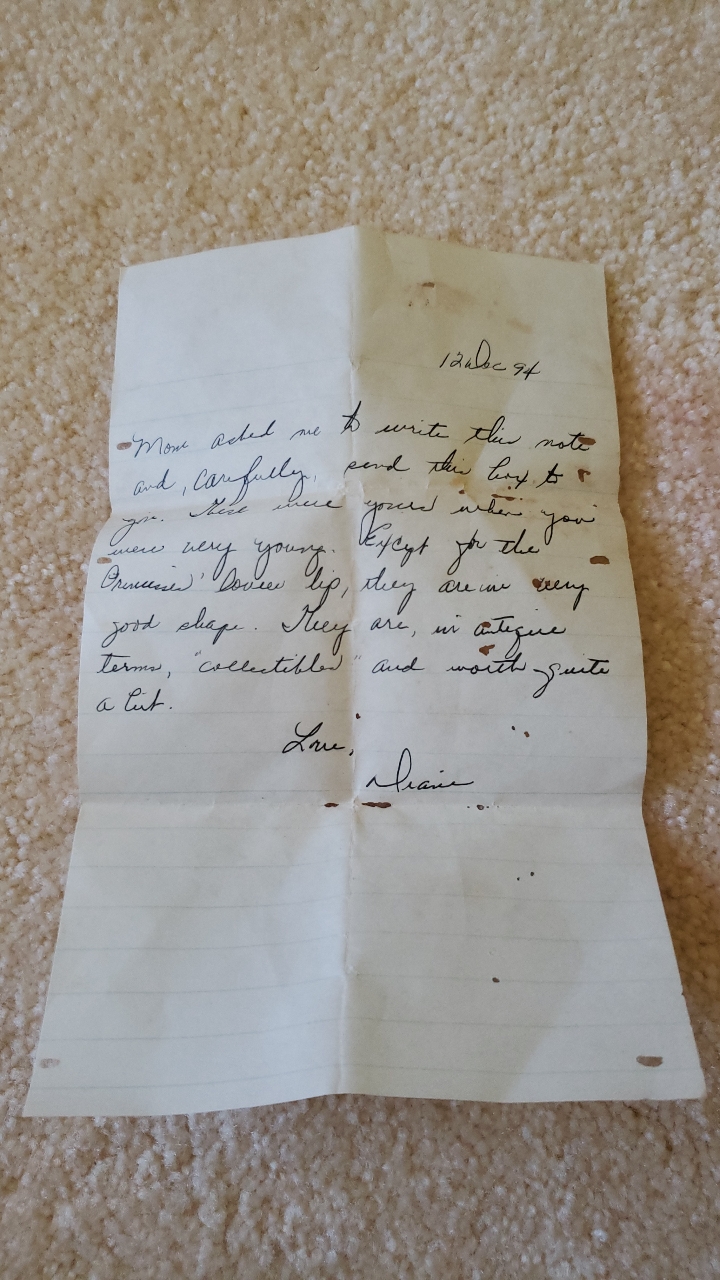 12 Dec 94
Mom asked me to write this note
and, carefully, send this box to
you. These were yours when you
were very young. Except for the
Princess' lower lip, they are in very
good shape. They are, in antique
terms, "collectibles" and worth quite
a bit.
Love,
Diane